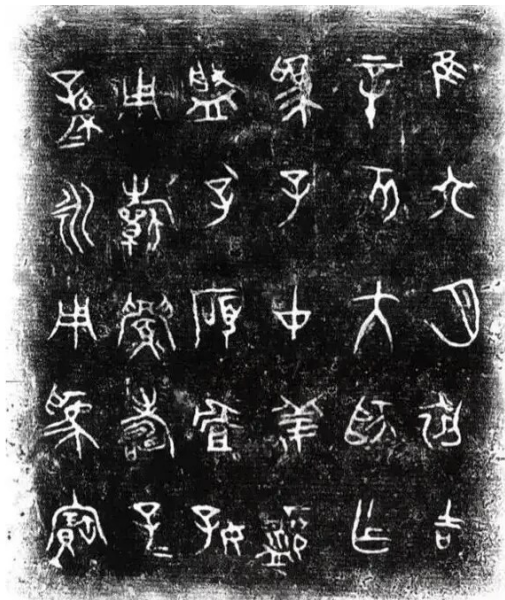 隹六月初吉
辛亥大師乍
爲子中姜沬
盤孔碩𠭯好
用祈眉壽子=
孫=永用爲寶